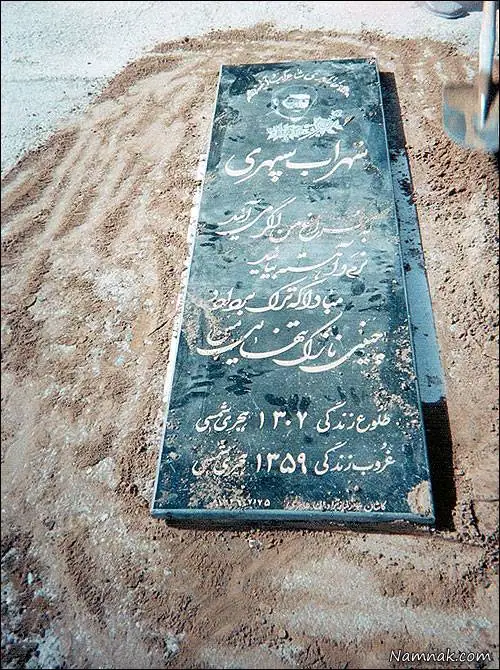 سهراب سپهری
به سراغ من اگر می آیید
نرم و آهسته بیایید
مبادا که ترک بردارد
چینی نازک تنهایی من
طلوع زندگی ۱۳۰۷ هجری شمسی
غروب زندگی ۱۳۵۹ هجری شمسی
کاشان
Namnak.com